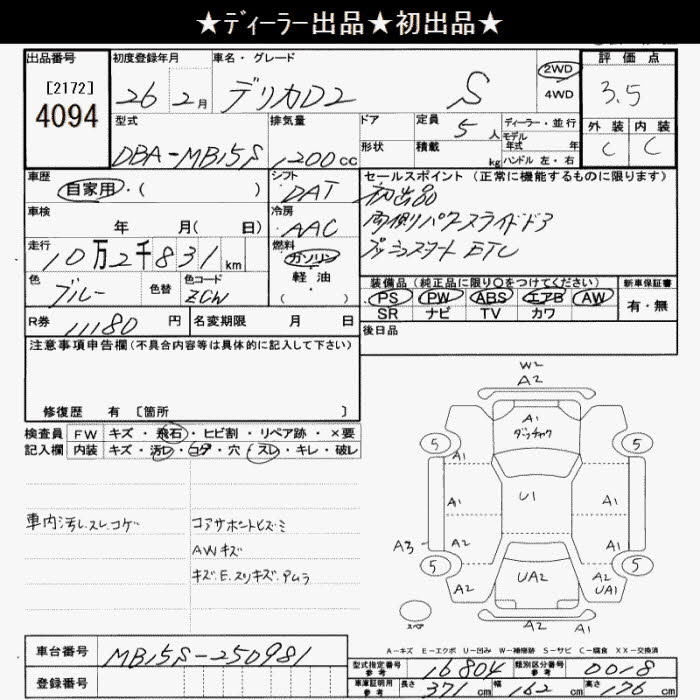 ★ディーラー出品★初出品★
出品番号
[2172]
4094
初度登録年月
26 2月
車名・グレード
デリカD2 S
2WD
4WD
評価点
3.5
外装 内装
C C
型式
DBA-MB15S
排気量
1200cc
ドア
形状
定員
5人
積載
kg
ディーラー・並行
モデル
年式 年
ハンドル 左・右
車歴
自家用・( )
シフト
DAT
セールスポイント (正常に機能するものに限ります)
初出品
両側パワースライドドア
プッシュスタート ETC
車検
年 月( 日)
冷房
AAC
走行
10万2千831km
燃料
ガソリン
軽・油
( )
色
ブルー
色替
色コード
ZCW
装備品 (純正品に限り○をつけてください)
PS PW ABS エアB AW
SR ナビ TV カワ
新車保証書
有・無
R券
11180円
名変期限 月 日
後日品
注意事項申告欄(不具合内容等は具体的に記入して下さい)
修復歴 有 [箇所 ]
検査員
記入欄
FW キズ・飛石・ヒビ割・リペア跡・×要
内装 キズ・汚レ・コゲ・穴・スレ・キレ・破レ
車内汚レ.スレ.コゲ
コアサポートヒズミ
AWキズ
キズ.E.スリキズ.アムラ
W2
A2
A1
ダンチャク
5
5
A1
A1
A1
U1
A1
A3
A2
A2
5
5
A2
UA2
A2
UA1
スペア
A2 A1
A-キズ E-エクボ U-凹み W-補修跡 S-サビ C-腐食 XX-交換済
車台番号
MB15S-250981
登録番号
型式指定番号
参考
16804
類別区分番号
参考
0018
車庫証明用
参考
長さ 371cm
幅 162cm
高さ 176cm